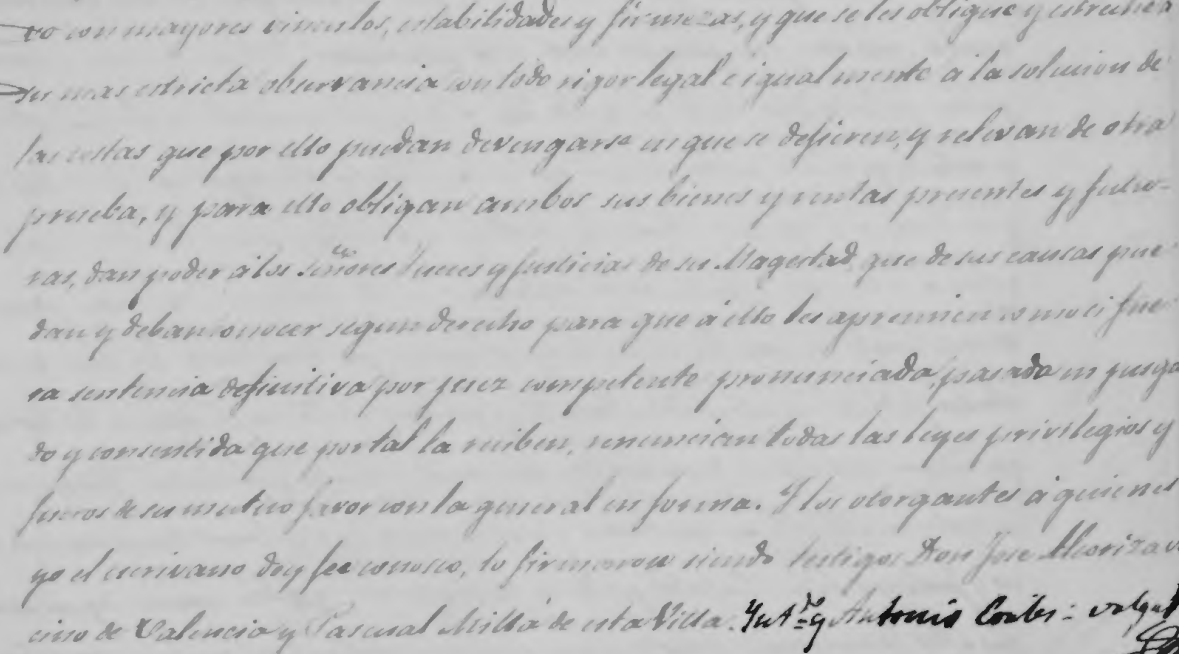 ro con mayores vinculos, estabilidades y firmezas, y que se les obligue y estreche à
su mas estricta observancia con todo rigor legal e igualmente à la solucion de
las costas que por ello puedan devengarse en que se defieren, y relevan de otra
prueba, y para ello obligan ambos sus bienes y rentas presentes y futu-
ras, dan poder à los Señores Jueces y Justicias de su Magestad, que de sus causas pue
dan y deban conocer segun derecho para que à ello les apremien como si fue
ra sentencia definitiva por juez competente pronunciada, pasada en juzga
do y consentida que por tal la reciben, renuncian todas las leyes privilegios y
fueros de su mutuo favor con la general en forma. Y los otorgantes à quienes
yo el escrivano doy fee conosco, lo firmaron siendo testigos Don Jose Alcoriza ve
cino de Valencia y Pascual Millá de esta Villa. y Antonio valga